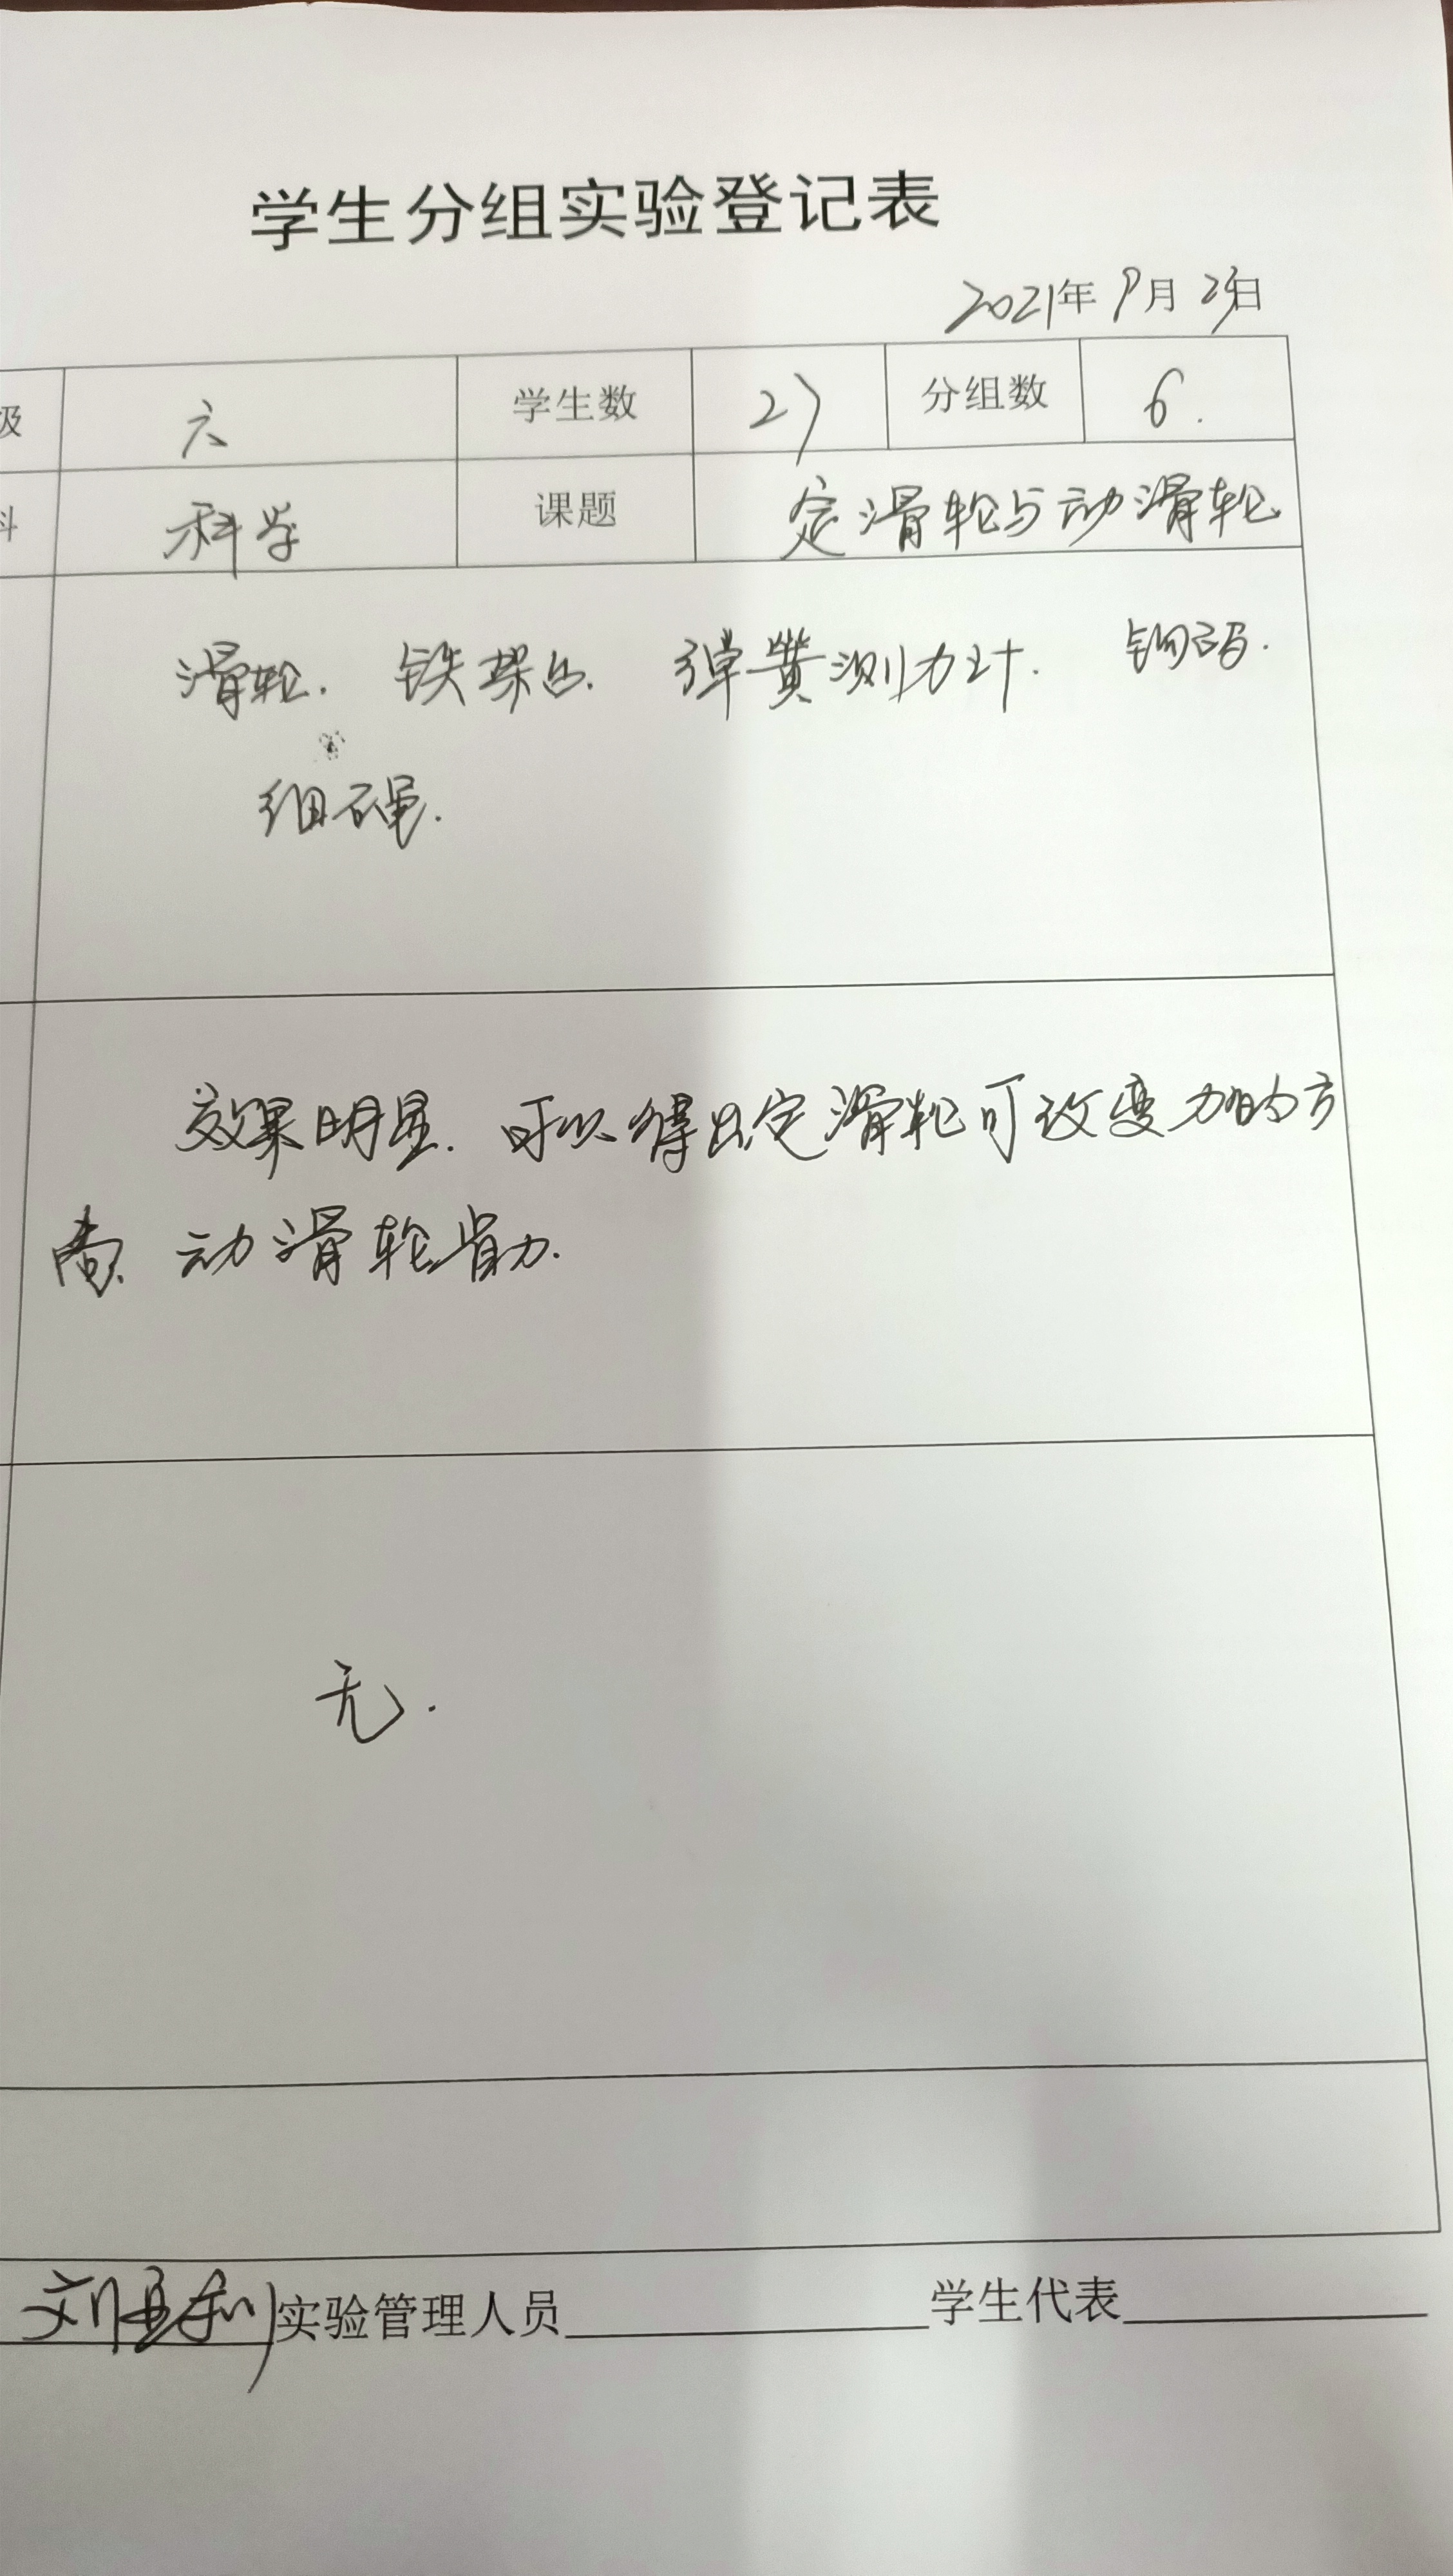 学生分组实验登记表
2021年9月23日
级 六 学生数 27 分组数 6.
科 科学 课题 定滑轮与动滑轮
滑轮. 铁架台. 弹簧测力计. 钩码.
细绳.
效果明显. 可以得出定滑轮可改变力的方
向. 动滑轮省力.
无.
实验管理人员 学生代表